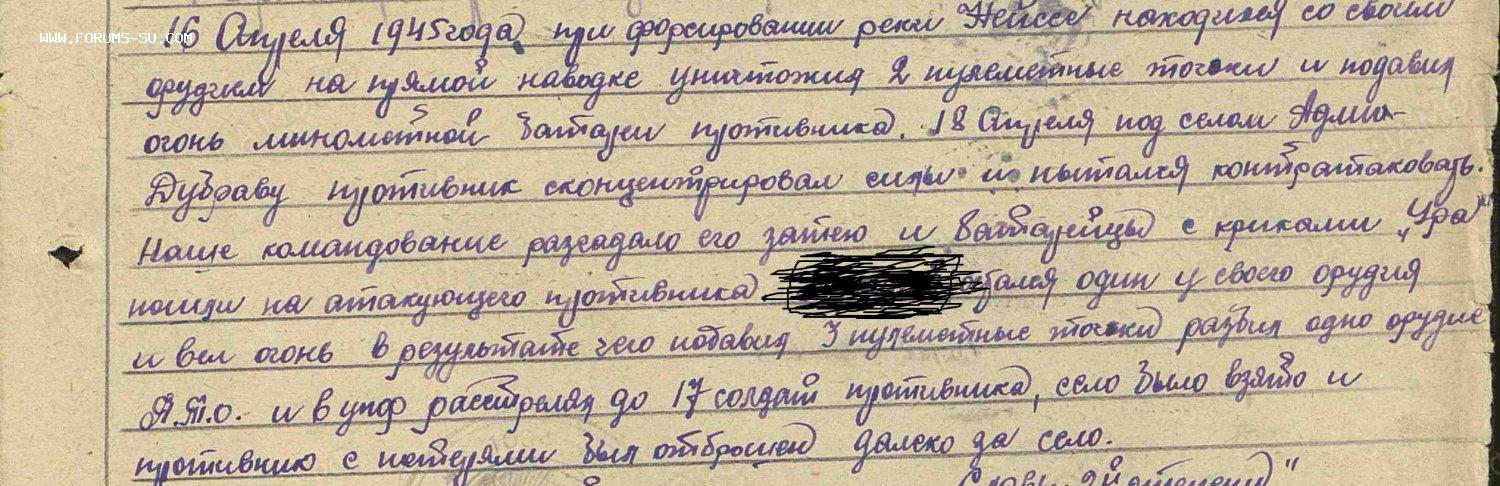 WWW.FORUMS-SU.COM
16 Апреля 1945 года при форсировании реки Нейссе находился со своим
орудием на прямой наводке уничтожил 2 пулеметные точки и подавил
огонь минометной батареи противника. 18 Апреля под селом Адлих-
Дубраву противник сконцентрировал силы и пытался контратаковать.
Наше командование разгадало его затею и батарейцы с криками „Ура"
пошли на атакующего противника остался один у своего орудия
и вел огонь в результате чего подавил 3 пулеметные точки разбил одно орудие
П.Т.О. и в упор расстрелял до 17 солдат противника, село было взято и
противник с потерями был отброшен далеко за село.
Славы